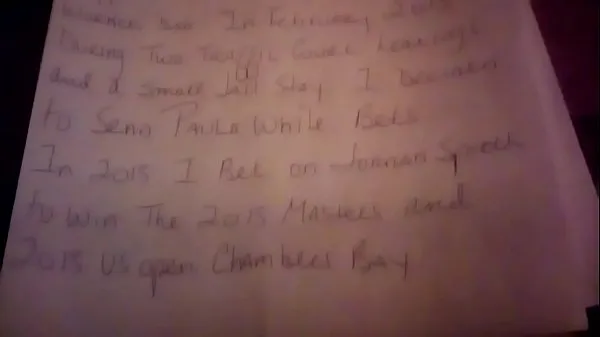 In February 2015
During Two Traffic Court hearings
and a small Jail Stay I
to Send Paula White Bets
In 2015 I Bet on Jordan
to win The 2015 Masters and
2015 US open Chambers Bay